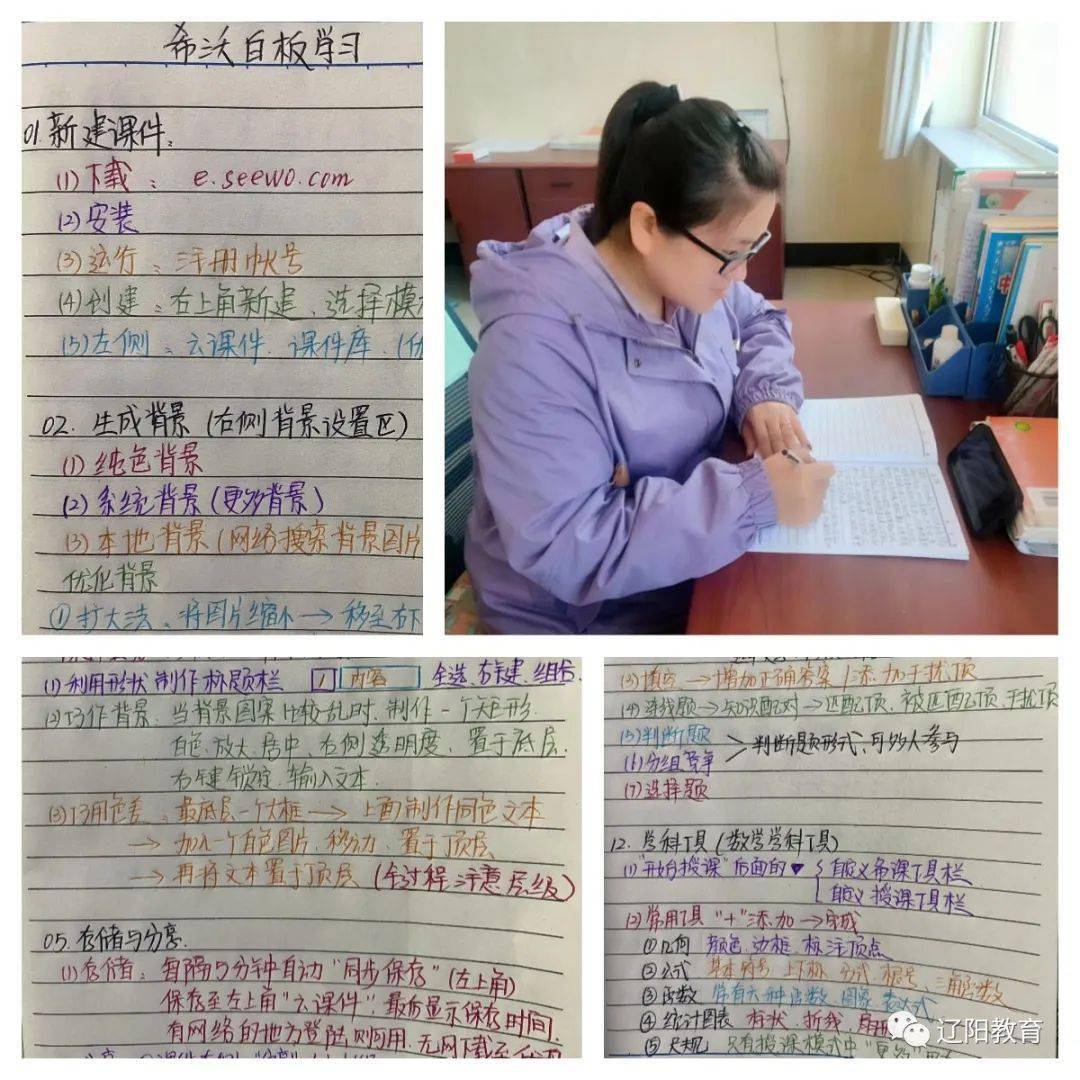 希沃白板学习
01.新建课件:
(1)下载: e.seewo.com
(2)安装
(3)运行:注册帐号
(4)创建:右上角新建、选择模
(5)左侧:云课件、课件库、(
02. 生成背景(右侧背景设置区)
(1)纯色背景
(2)系统背景(更多背景)
(3)本地背景(网络搜索背景图片
优化背景
①扩大法、将图片缩小→移至右下
(1)利用形状制作标题栏 1 内容 全选、右键、组合.
(2)巧作背景:当背景图案比较乱时.制作一个矩形.
白色.放大.居中、右侧透明度、置于底层.
右键锁定.输入文本.
(3)巧用色差:最底层一个大框→上面制作同色文本
→加一个白色图片、移动、置于顶层
→再将文本置于顶层(全过程注意层级)
05.存储与分享.
(1)存储:每隔5分钟自动“同步保存”(左上角)
保存至左上角“云课件”:最后显示保存时间.
有网络的地方登陆则可用.无网下载至
(3)填空→增加正确答案/添加干扰项
(4)连线题→知识配对→匹配项、被匹配项、干扰项
(5)判断题
(6)分组竞争 >判断题形式、可多人参与
(7)选择题
12. 学科工具(数学学科工具)
(1)“开始授课”后面的▼{自定义备课工具栏
自定义授课工具栏
(2)常用工具“+”添加→完成
①几何 颜色.边框.标注顶点
②公式 基本符号、上下标、分式、根号、三角函数
③函数 常有六种函数、图象、表达式
④统计图表 柱状、折线、
⑤尺规 只有授课模式中“更多”
辽阳教育